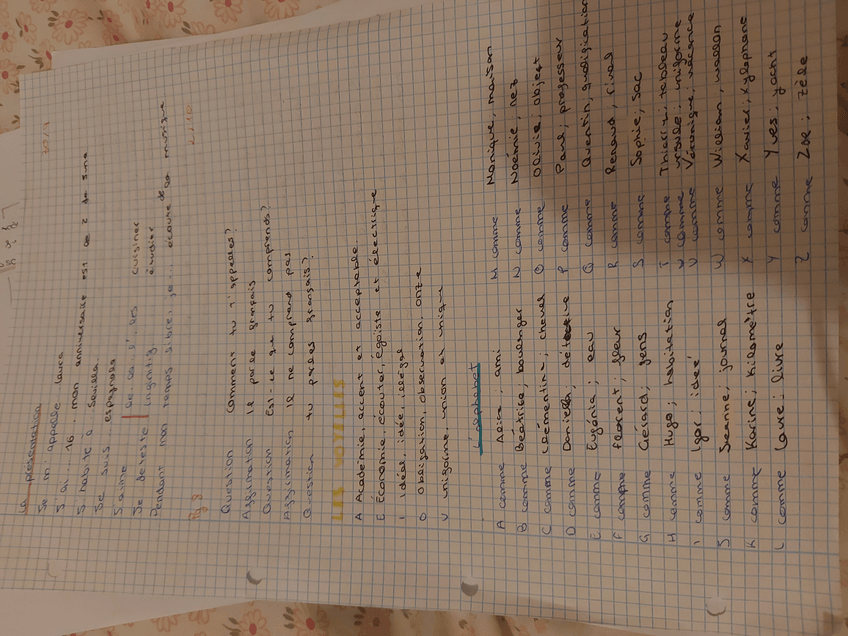 La présentation
Je m'appelle Laura
J'ai 16 mon anniversaire est le 2 de
J'habite à Sevilla
Je suis espagnola
J'aime cuisiner
Je déteste étudier
Pendant mon temps libre, je écoute de musique
Pg 8
Question Comment tu t'appelles?
Affirmation Il parle français
Question Est-ce que tu comprends?
Affirmation Il ne comprend pas
Question tu parles français?
LES VOYELLES
A Académie, accent et acceptable
E Économie, écouter, égoïste et électrique
I idéal, idée, illégal
O Obligation, observation, onze
U uniforme, union et unique
L'alphabet
A comme ; ami
B comme Béatrice; boulanger
C comme Clémentine; cheval
D comme Daniella; détective
E comme Eugénia; eau
F comme Florent; fleur
G comme Gérard; gens
H comme Hugo; habitation
I comme Igor; idée
J comme Jeanne; journal
K comme Karine; kilomètre
L comme Laure; livre
M comme Monique, maison
N comme Noémie, nez
O comme Olivie; objet
P comme Paul; professeur
Q comme Quentin,
R comme Renaud, rival
S comme Sophie; sac
T comme tableau
U comme Ursule; uniforme
V comme Véronique; vacance
W comme William, wallon
X comme Xavier; xylophone
Y comme Yves; yacht
Z comme Zoe; zèle